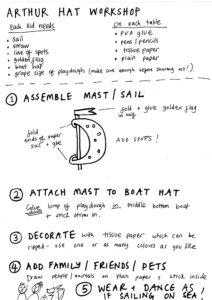 ARTHUR HAT WORKSHOP
Each kid needs
• sail
• straw
• line of spots
• golden flag
• boat hat
• grape size of playdough (make sure enough before sharing out!)
On each table
• PVA glue
• pens/pencils
• tissue paper
• plain paper
① ASSEMBLE MAST / SAIL
fold + glue golden flag
in half
fold
ends of paper
sail + glue
ADD SPOTS!
② ATTACH MAST TO BOAT HAT
Glue lump of playdough in middle bottom boat
+ stick straw in.
③ DECORATE with tissue paper which can be
ripped - use one or as many colours as you like
④ ADD FAMILY / FRIENDS / PETS
Draw people/animals on plain paper + stick inside
⑤ WEAR + DANCE AS
IF SAILING ON SEA!